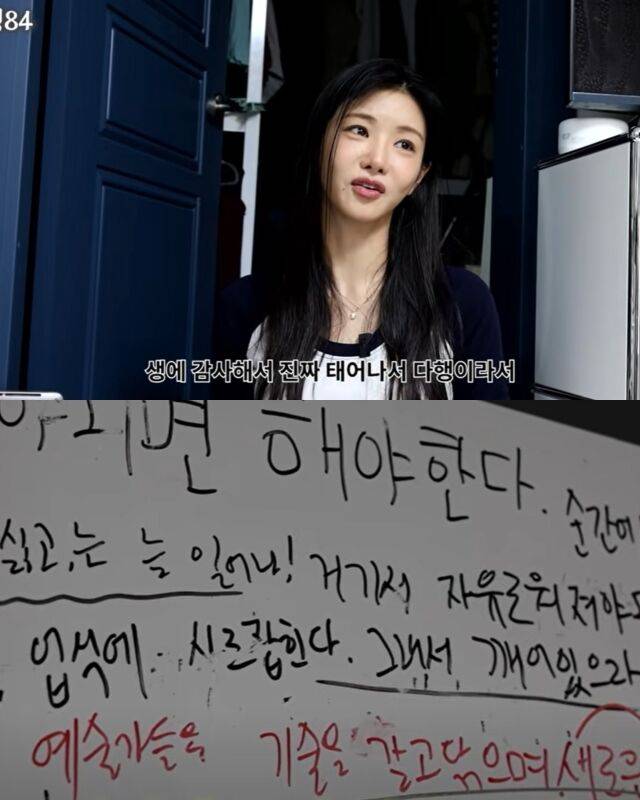 84
생에 감사해서 진짜 태어나서 다행이라서
해야한다.
순간에
싫고,는 늘 일어나! 거기서 자유로워져야
업식에. 사로잡힌다. 그래서 깨어있으라
예술가들은 기술을 갈고닦으며 새로운